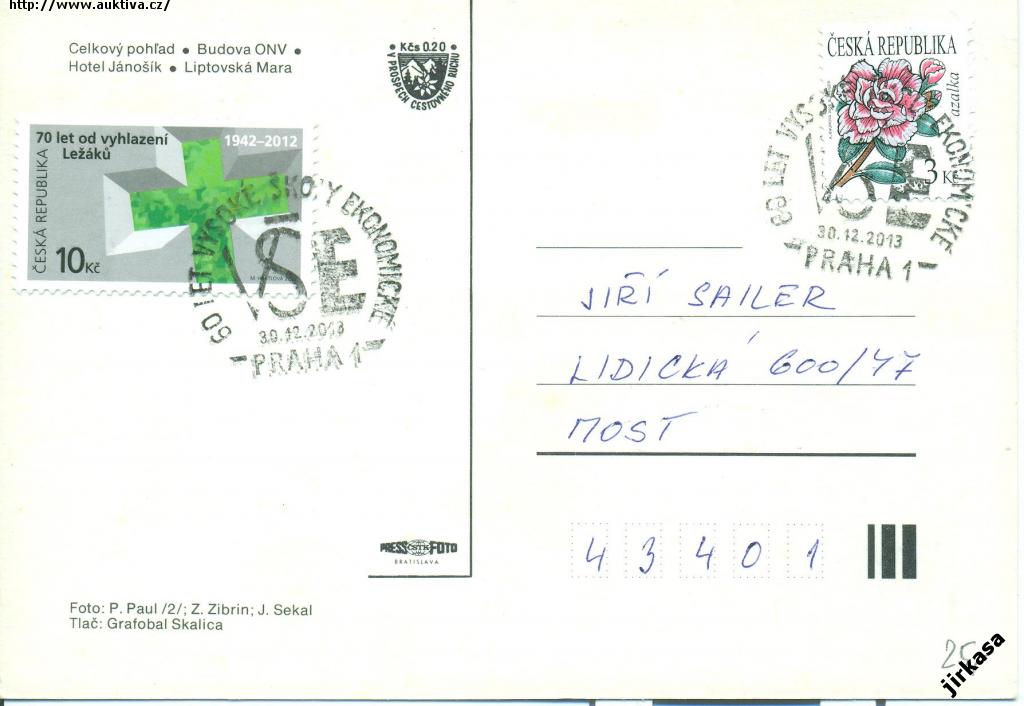 http://www.auktiva.cz/
Celkový pohľad • Budova ONV •
Hotel Jánošík • Liptovská Mara
Kčs 0.20
V PROSPĚCH CESTOVNÉHO RUCHU
ČESKÁ REPUBLIKA
azalka
3 Kč
70 let od vyhlazení
Ležáků
1942–2012
ČESKÁ REPUBLIKA
10 Kč
60 LET VYSOKÉ ŠKOLY EKONOMICKÉ
VŠE
30.12.2013
PRAHA 1
60 LET VYSOKÉ ŠKOLY EKONOMICKÉ
VŠE
30.12.2013
PRAHA 1
JIŘÍ SAILER
LIDICKÁ 600/47
MOST
43401
PRESS ČSTK FOTO
BRATISLAVA
Foto: P. Paul /2/; Z. Zibrin; J. Sekal
Tlač: Grafobal Skalica
25
jirkasa